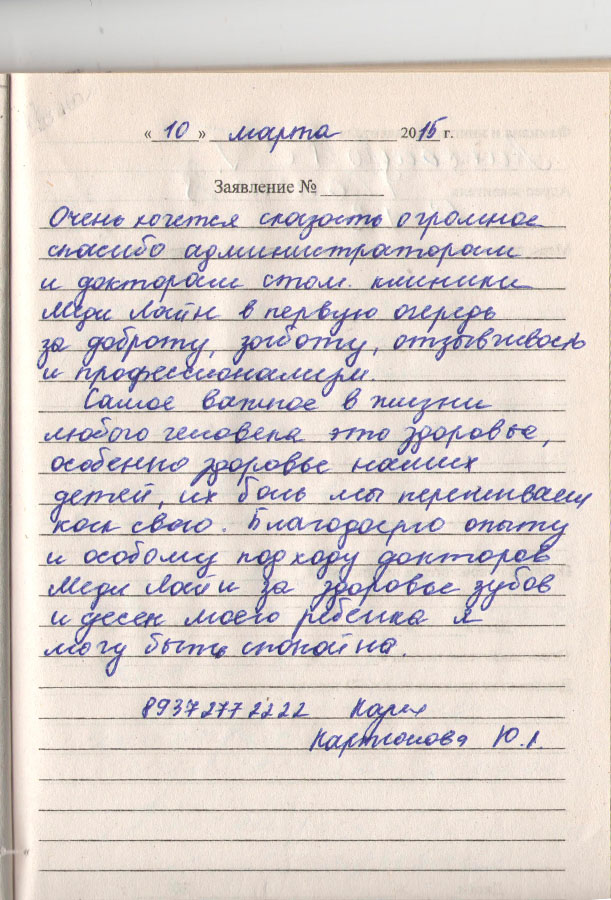 « 10 » марта 2015 г.
Заявление №
Очень хочется сказать огромное
спасибо администраторам
и докторам стом. клиники
Меди Лайн в первую очередь
за доброту, заботу, отзывчивость
и профессионализм.
Самое важное в жизни
любого человека это здоровье,
особенно здоровье наших
детей, их боль мы переживаем
как свою. Благодарю опыту
и особому подходу докторов
Меди Лайн за здоровье зубов
и десен моего ребенка я
могу быть спокойна.
8937 277 2222
Ю.А.